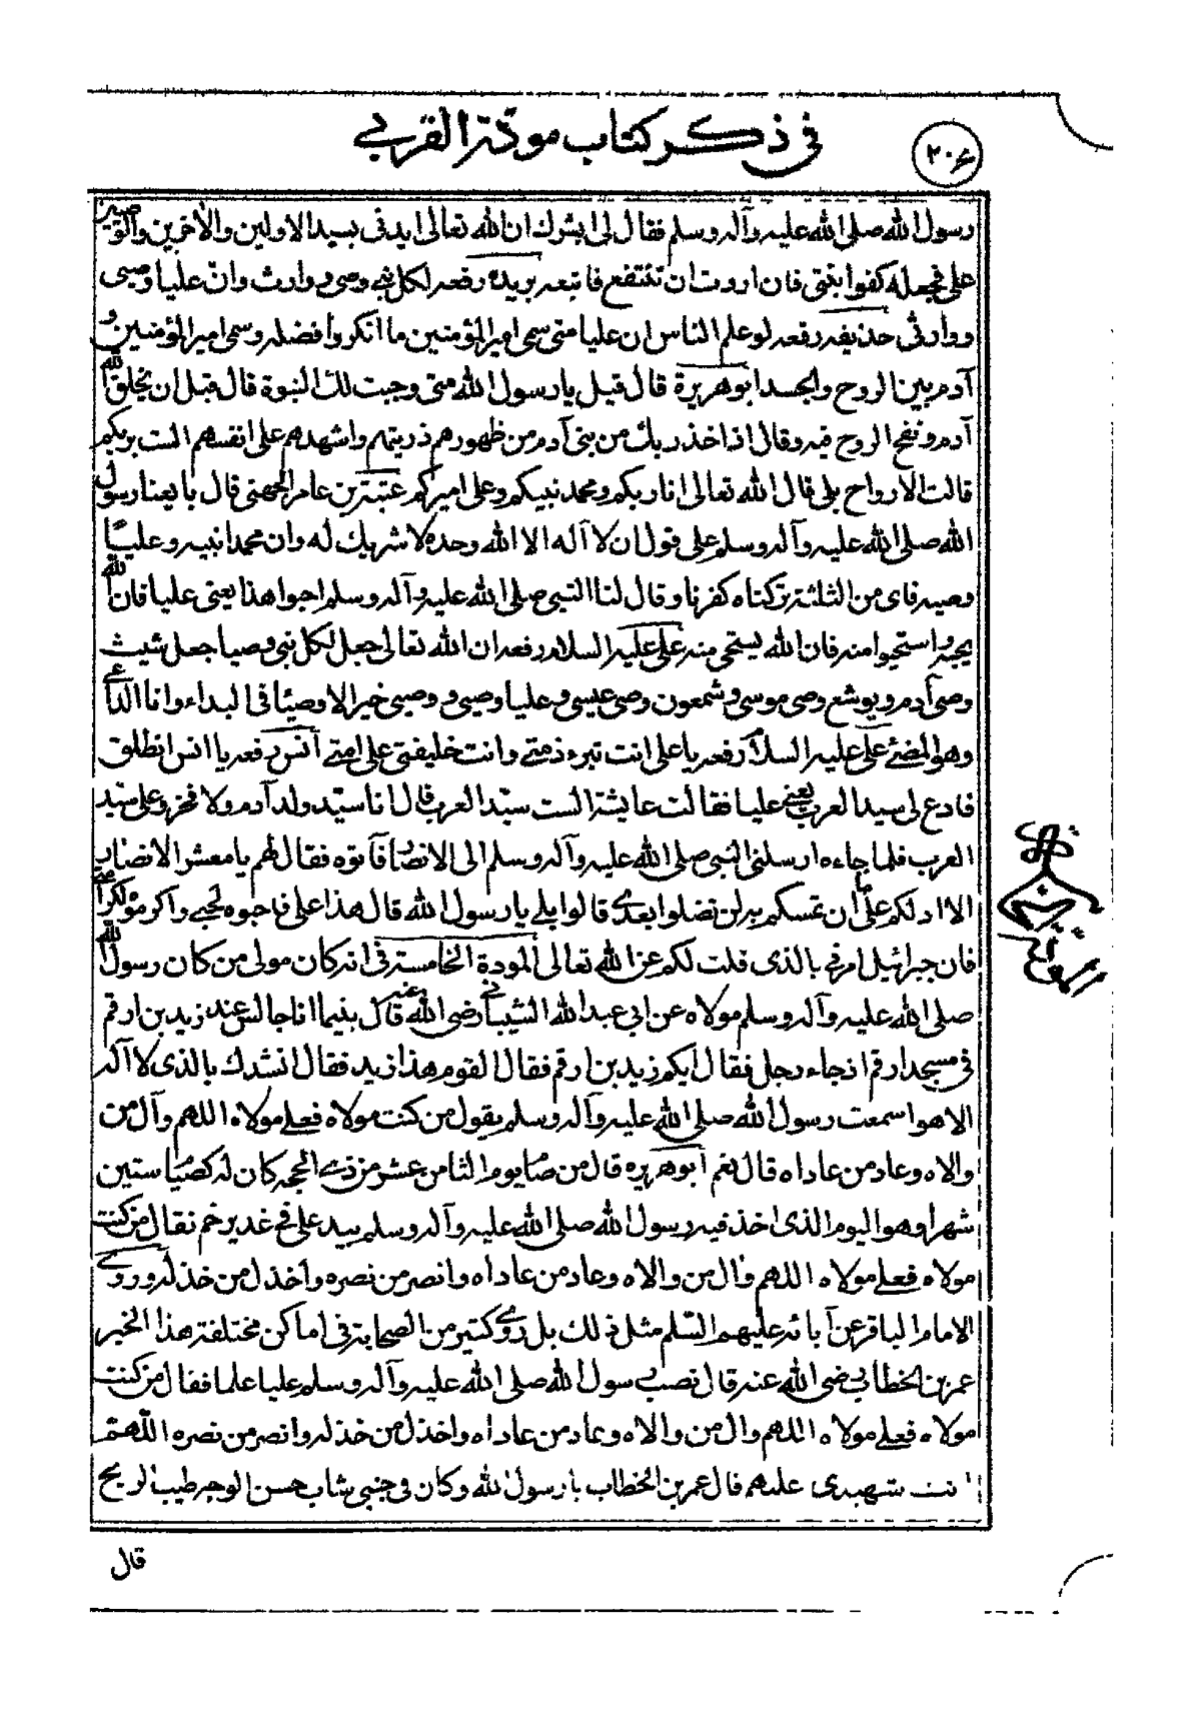 في ذكر كتاب مودة القربى
٢٠٦
رسول الله صلى الله عليه وآله وسلم فقال لي ابشرك ان الله تعالى ايدني بسيد الاولين والآخرين والوصيين
علي فجعله كفوا بنتي فان اردت ان تنتفع فاتبعه بريدة رفعه لكل نبي وصي ووارث وان عليا وصيي
ووارثي حذيفه رفعه لو علم الناس ان عليا متى سمي امير المؤمنين ما انكروا فضله وسمي امير المؤمنين و
آدم بين الروح والجسد ابو هريرة قال قيل يا رسول الله متى وجبت لك النبوة قال قبل ان يخلق الله
آدم ونفخ الروح فيه وقال اذ اخذ ربك من بني آدم من ظهورهم ذريتهم واشهدهم على انفسهم الست بربكم
قالت الارواح بلى قال الله تعالى انا ربكم ومحمد نبيكم وعلي اميركم عتبة بن عامر الجهني قال بايعنا رسول
الله صلى الله عليه وآله وسلم على قول ان لا آله الا الله وحده لا شريك له وان محمدا نبيه وعليا
وصيه فاي من الثلثة تركناه كفرنا وقال لنا النبي صلى الله عليه وآله وسلم احبوا هذا يعني عليا فان الله
يحبه واستحيوا منه فان الله يستحي منه علي عليه السلام رفعه ان الله تعالى جعل لكل نبي وصيا جعل شيث
وصي آدم ويوشع وصي موسى وشمعون وصي عيسى وعليا وصيي ووصيي خير الاوصياء في البداء وانا الداعي
وهو المضئ علي عليه السلام رفعه يا علي انت تبرء ذمتي وانت خليفتي على امتي آنس رفعه يا انس انطلق
فادع لي سيد العرب يعني عليا فقالت عايشة الست سيد العرب قال انا سيد ولد آدم ولا فخر وعلي سيد
العرب فلما جاءه ارسلني النبي صلى الله عليه وآله وسلم الى الانصار فآتوه فقال لهم يا معشر الانصار
الا ادلكم على ان تمسكم به لن تضلوا بعدي قالوا بلى يا رسول الله قال هذا علي فاحبوه لحبي واكرموه لكرامتي
فان جبرائيل امرني بالذي قلت لكم عن الله تعالى المودة الخامسة في انه كان مولى من كان رسول الله
صلى الله عليه وآله وسلم مولاه عن ابي عبد الله الشيباني رضي الله عنه قال بينما انا جالس عند زيد بن ارقم
في مسجد ارقم اذ جاء رجل فقال ايكم زيد بن ارقم فقال القوم هذا زيد فقال انشدك بالذي لا آله
الا هو اسمعت رسول الله صلى الله عليه وآله وسلم يقول من كنت مولاه فعلي مولاه اللهم وآل من
والاه وعاد من عاداه قال نعم آبو هريره قال من صام يوم الثامن عشر من ذي الحجه كان له كصيام ستين
شهرا وهو اليوم الذي اخذ فيه رسول الله صلى الله عليه وآله وسلم بيد علي في غدير خم فقال من كنت
مولاه فعلي مولاه اللهم وال من والاه وعاد من عاداه وانصر من نصره واخذل من خذله وروى
الامام الباقر عن آبائه عليهم السلم مثل ذلك بل روى كثير من الصحابة في اماكن مختلفة هذا الخبر
عمر بن الخطاب رضي الله عنه قال نصب رسول الله صلى الله عليه وآله وسلم عليا علما فقال من كنت
مولاه فعلي مولاه اللهم وال من والاه وعاد من عاداه واخذل من خذله وانصر من نصره اللهم
انت شهيدي عليهم قال عمر بن الخطاب يا رسول الله وكان في جنبي شاب حسن الوجه طيب الريح
قال